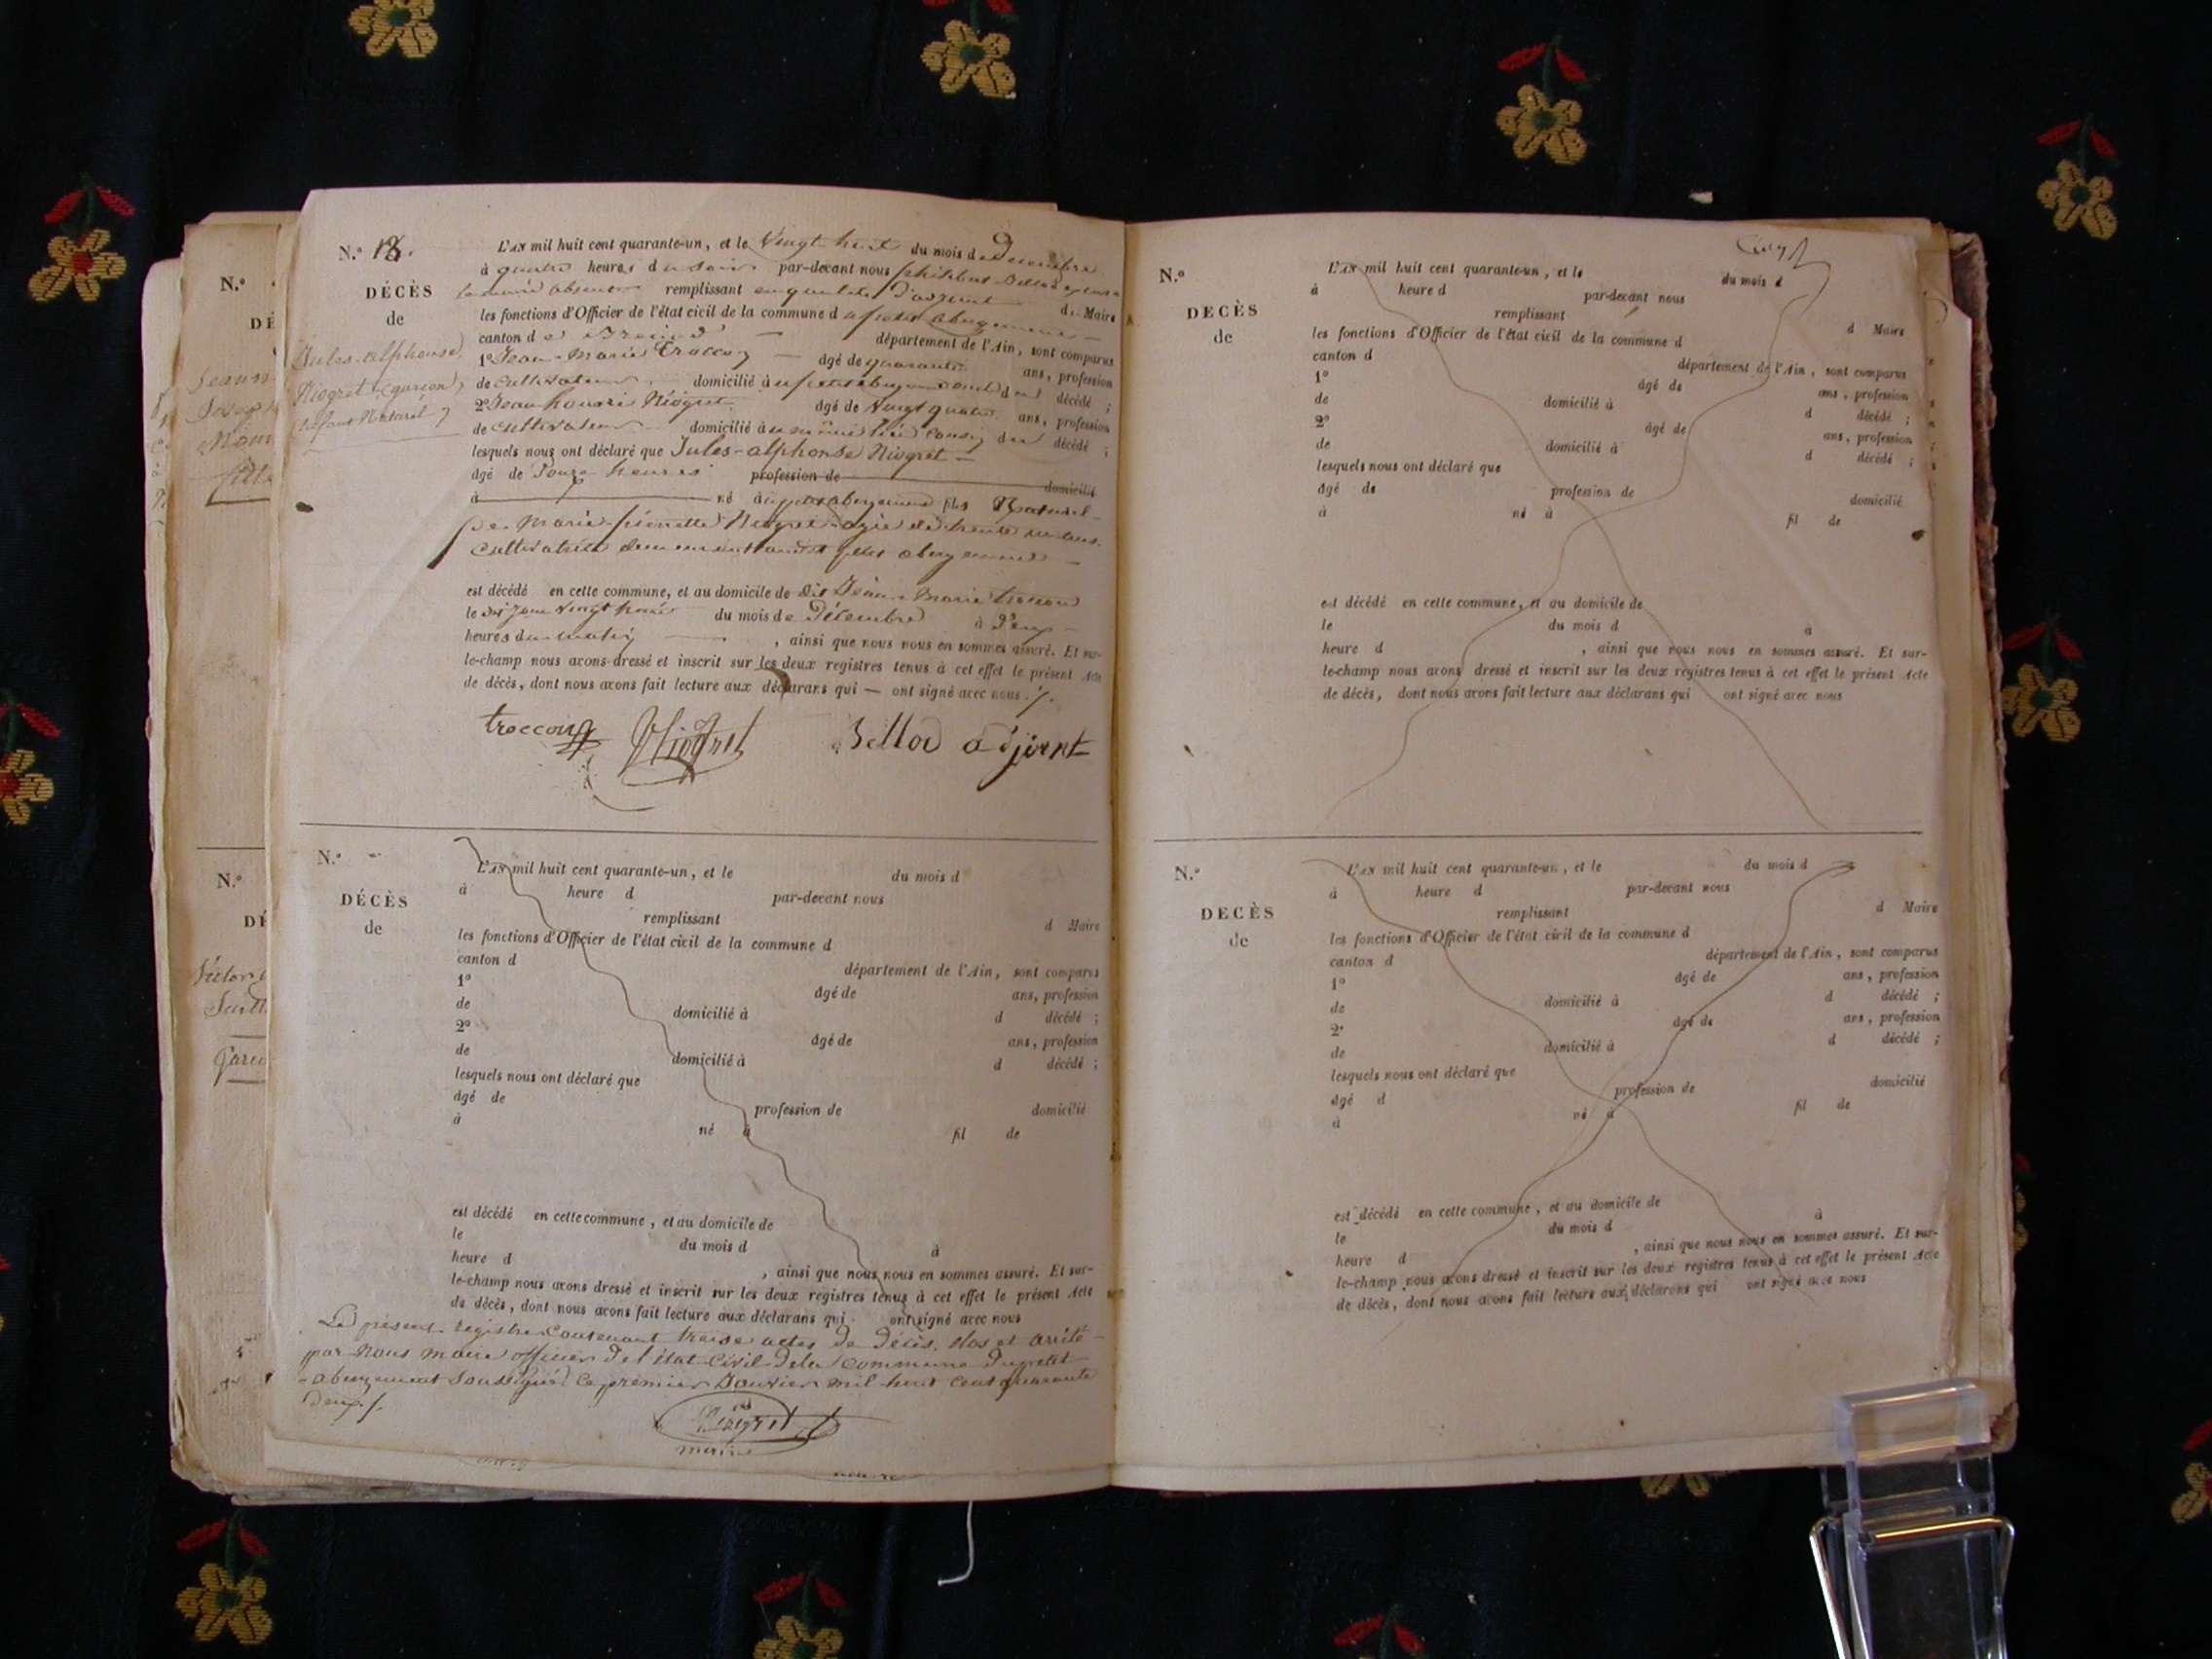 N.º 13.
DÉCÈS
de
Jules-alphonse
Niogret (garçon)
enfant Naturel
L'AN mil huit cent quarante-un, et le Vingt huit du mois de Decembre
à quatre heures du soir par-devant nous philibert Bellod
le maire absent remplissant en qualité d'adjoint de Maire
les fonctions d'Officier de l'état civil de la commune du petit abergement
canton de département de l'Ain, sont comparus
1º Jean-Marie Troccon âgé de quarante ans, profession
de cultivateur domicilié à au petit abergement décédé ;
2º Jean honoré Niogret âgé de Vingt quatre ans, profession
de cultivateur domicilié à au même lieu cousin du décédé ;
lesquels nous ont déclaré que Jules-alphonse Niogret
âgé de Douze heures profession de domicilié
à né à au petit abergement fils Naturel
de Marie-pierrette Niogret agée de trente
cultivatrice demeurant audit petit abergement
est décédé en cette commune, et au domicile de dit Jean-Marie troccon
le du mois de Décembre à Deux
heures du matin , ainsi que nous nous en sommes assuré. Et sur-
le-champ nous avons dressé et inscrit sur les deux registres tenus à cet effet le présent Acte
de décès, dont nous avons fait lecture aux déclarans qui — ont signé avec nous ./.
troccon Niogret Bellod adjoint
N.º
DÉCÈS
de
L'AN mil huit cent quarante-un, et le du mois d
à heure d par-devant nous
remplissant d Maire
les fonctions d'Officier de l'état civil de la commune d
canton d département de l'Ain, sont comparus
1º âgé de ans, profession
de domicilié à d décédé ;
2º âgé de ans, profession
de domicilié à d décédé ;
lesquels nous ont déclaré que
âgé de profession de domicilié
à né à fil de
est décédé en cette commune, et au domicile de
le du mois d à
heure d , ainsi que nous nous en sommes assuré. Et sur-
le-champ nous avons dressé et inscrit sur les deux registres tenus à cet effet le présent Acte
de décès, dont nous avons fait lecture aux déclarans qui ont signé avec nous
Le présent registre contenant treize actes de Décès. Clos et arrêté
par Nous maire officier de l'état civil de la commune du petit
abergement soussigné ce premier Janvier mil huit cent quarante
deux ./.
Niogret
maire
N.º
DÉCÈS
de
L'AN mil huit cent quarante-un, et le du mois d
à heure d par-devant nous
remplissant d Maire
les fonctions d'Officier de l'état civil de la commune d
canton d département de l'Ain, sont comparus
1º âgé de ans, profession
de domicilié à d décédé ;
2º âgé de ans, profession
de domicilié à d décédé ;
lesquels nous ont déclaré que
âgé de profession de domicilié
à né à fil de
est décédé en cette commune, et au domicile de
le du mois d à
heure d , ainsi que nous nous en sommes assuré. Et sur-
le-champ nous avons dressé et inscrit sur les deux registres tenus à cet effet le présent Acte
de décès, dont nous avons fait lecture aux déclarans qui ont signé avec nous
N.º
DECÈS
de
L'AN mil huit cent quarante-un, et le du mois d
à heure d par-devant nous
remplissant d Maire
les fonctions d'Officier de l'état civil de la commune d
canton d département de l'Ain, sont comparus
1º âgé de ans, profession
de domicilié à d décédé ;
2º âgé de ans, profession
de domicilié à d décédé ;
lesquels nous ont déclaré que
âgé d profession de domicilié
à né à fil de
est décédé en cette commune, et au domicile de
le du mois d à
heure d , ainsi que nous nous en sommes assuré. Et sur-
le-champ nous avons dressé et inscrit sur les deux registres tenus à cet effet le présent Acte
de décès, dont nous avons fait lecture aux déclarans qui ont signé avec nous